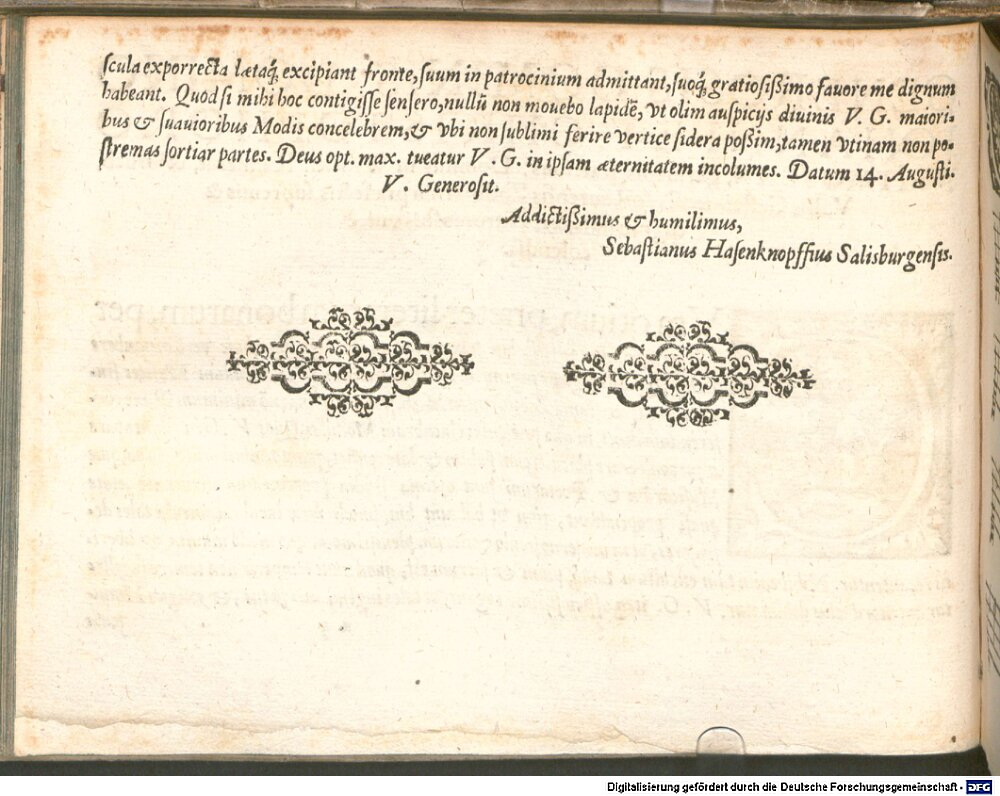 ſcula exporrecta lætaq́; excipiant fronte, ſuum in patrocinium admittant, ſuoq́; gratioſißimo fauore me dignum
habeant. Quod ſi mihi hoc contigiſſe ſenſero, nullũ non mouebo lapidẽ, vt olim auſpicijs diuinis V. G. maiori-
bus & ſuauioribus Modis concelebrem, & vbi non ſublimi ferire vertice ſidera poßim, tamen vtinam non po-
ſtremas ſortiar partes. Deus opt. max. tueatur V. G. in ipſam æternitatem incolumes. Datum 14. Auguſti.
V. Generoſit.
Addictißimus & humilimus,
Sebaſtianus Haſenknopffius Salisburgenſis.
Digitalisierung gefördert durch die Deutsche Forschungsgemeinschaft - DFG